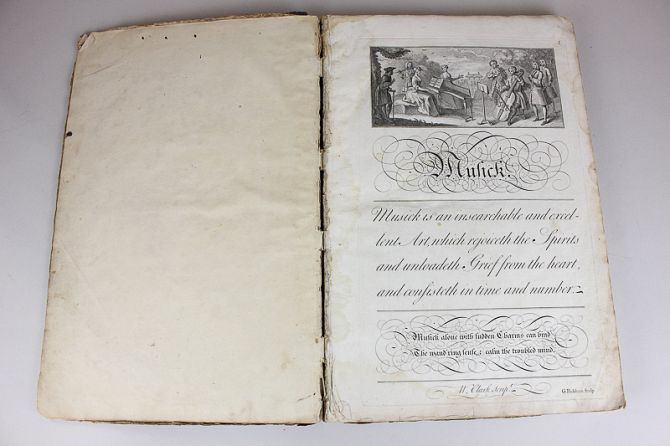 1
Musick.
Musick is an insearchable and excel-
lent Art, which rejoiceth the Spirits
and unloadeth Grief from the heart,
and consisteth in time and number.
Musick alone with sudden Charms can bind
The wand'ring sense, & calm the troubled mind.
W. Clark Scrip.
G. Bickham Sculp.